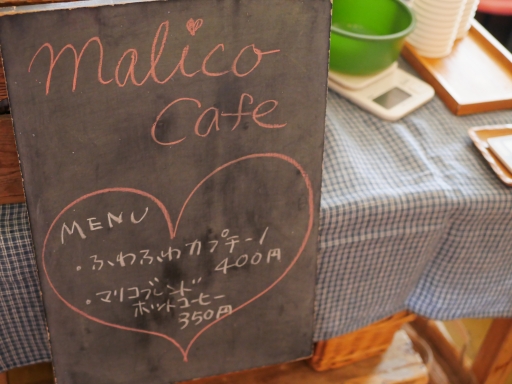 Malico
Cafe
MENU
・ふわふわカプチーノ
400円
・マリコブレンド
ホットコーヒー
350円